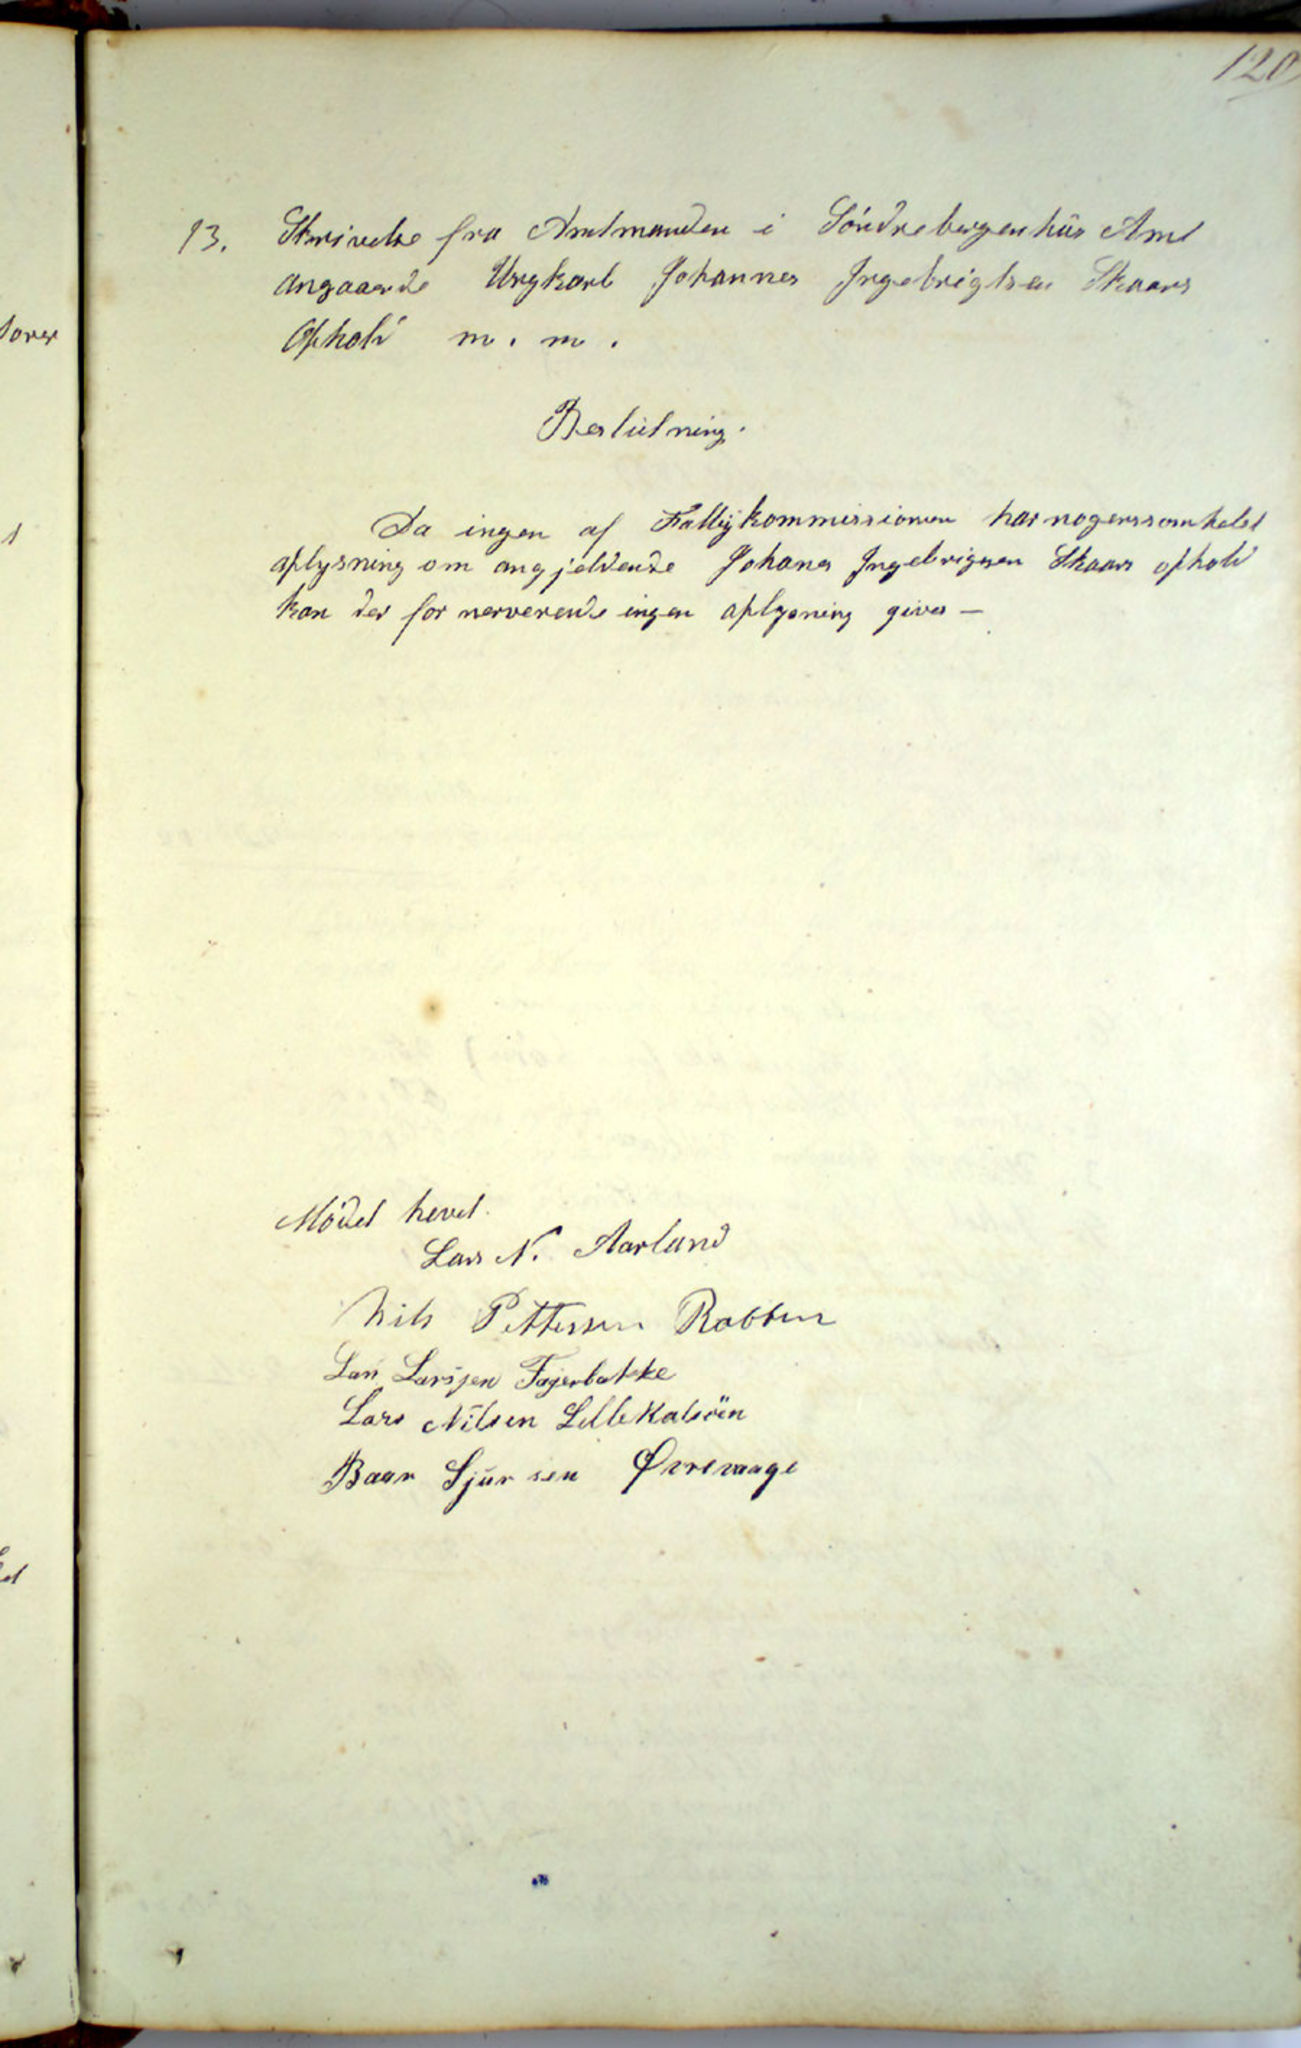 120
13. Skrivelse fra Amtmanden i Söndrebergenhüs Amt
angaaende Ungkarl Johannes Ingebrigtsen Skaars
Ophold m. m.
Beslütning.
Da ingen af Fattigkommissionen har nogenssomhelst
oplysning om angjeldende Johanes Ingebrigsen Skaars ophold
kan der for nerverende ingen oplysning gives —
Mödet hevet.
Lars N. Aarland
Nils Pettersen Rabben
Lars Larssen Fagerbakke
Lars Nilsen Lille Kalsöen
Baar Sjürsen Øvrevaage